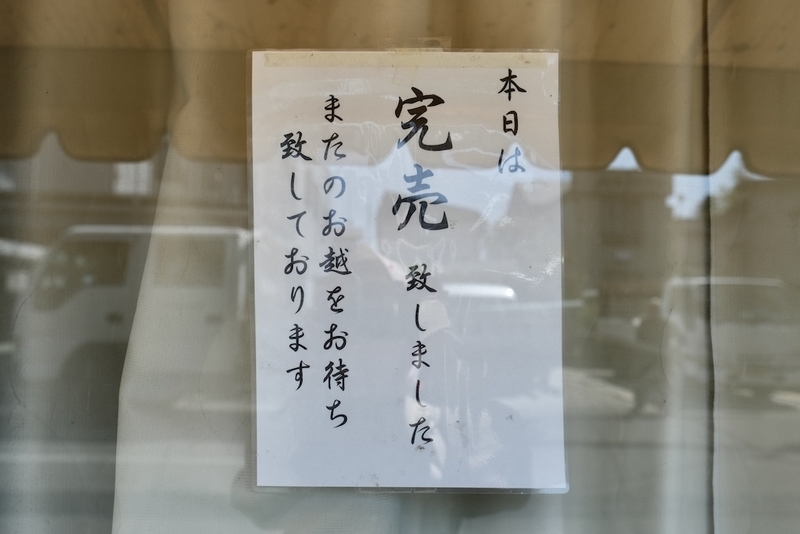 本日は
完売致しました
またのお越をお待ち
致しております